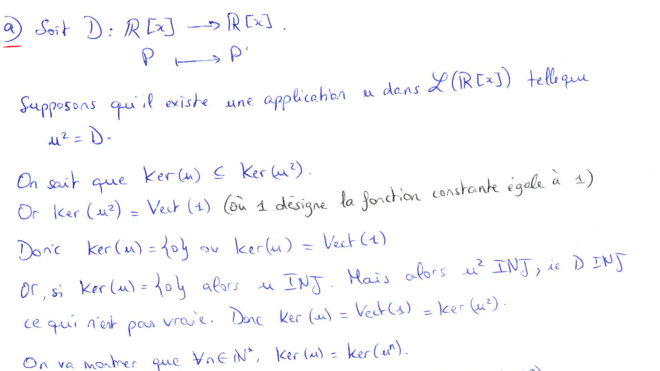 a) Soit D : ℝ[x] ⟶ ℝ[x].
P ⟼ P'
Supposons qu'il existe une application u dans ℒ(ℝ[x]) telle que
u² = D.
On sait que Ker(u) ⊆ Ker(u²).
Or Ker(u²) = Vect(1) (où 1 désigne la fonction constante égale à 1)
Donc Ker(u) = {0} ou Ker(u) = Vect(1)
Or, si Ker(u) = {0} alors u INJ. Mais alors u² INJ, ie D INJ
ce qui n'est pas vraie. Donc Ker(u) = Vect(1) = Ker(u²).
On va montrer que ∀n∈ℕ*, Ker(u) = Ker(uⁿ).